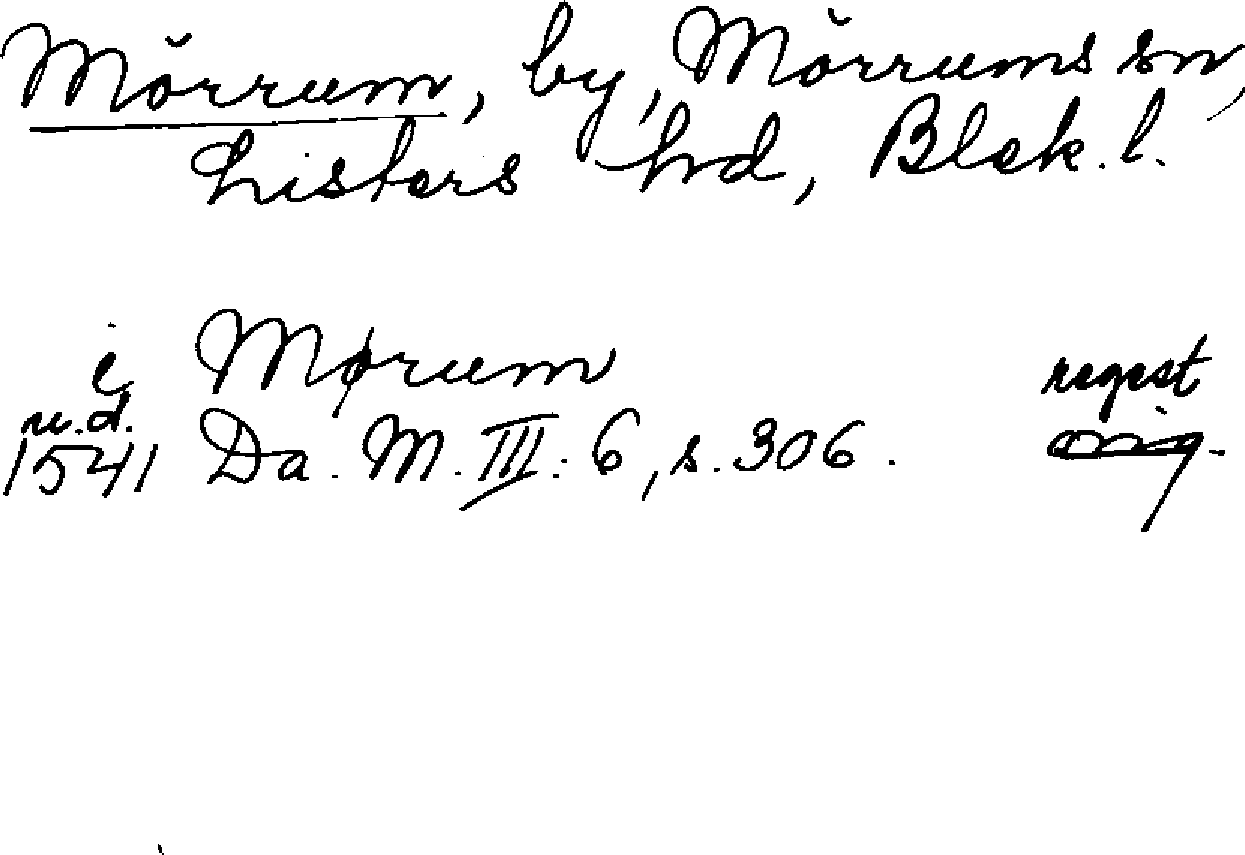 Mörrum, by, Mörrums sn,
Listers hd, Blek. l.
i Mørum regest
u.d.
1541 Da. M. III. 6, s. 306. orig.